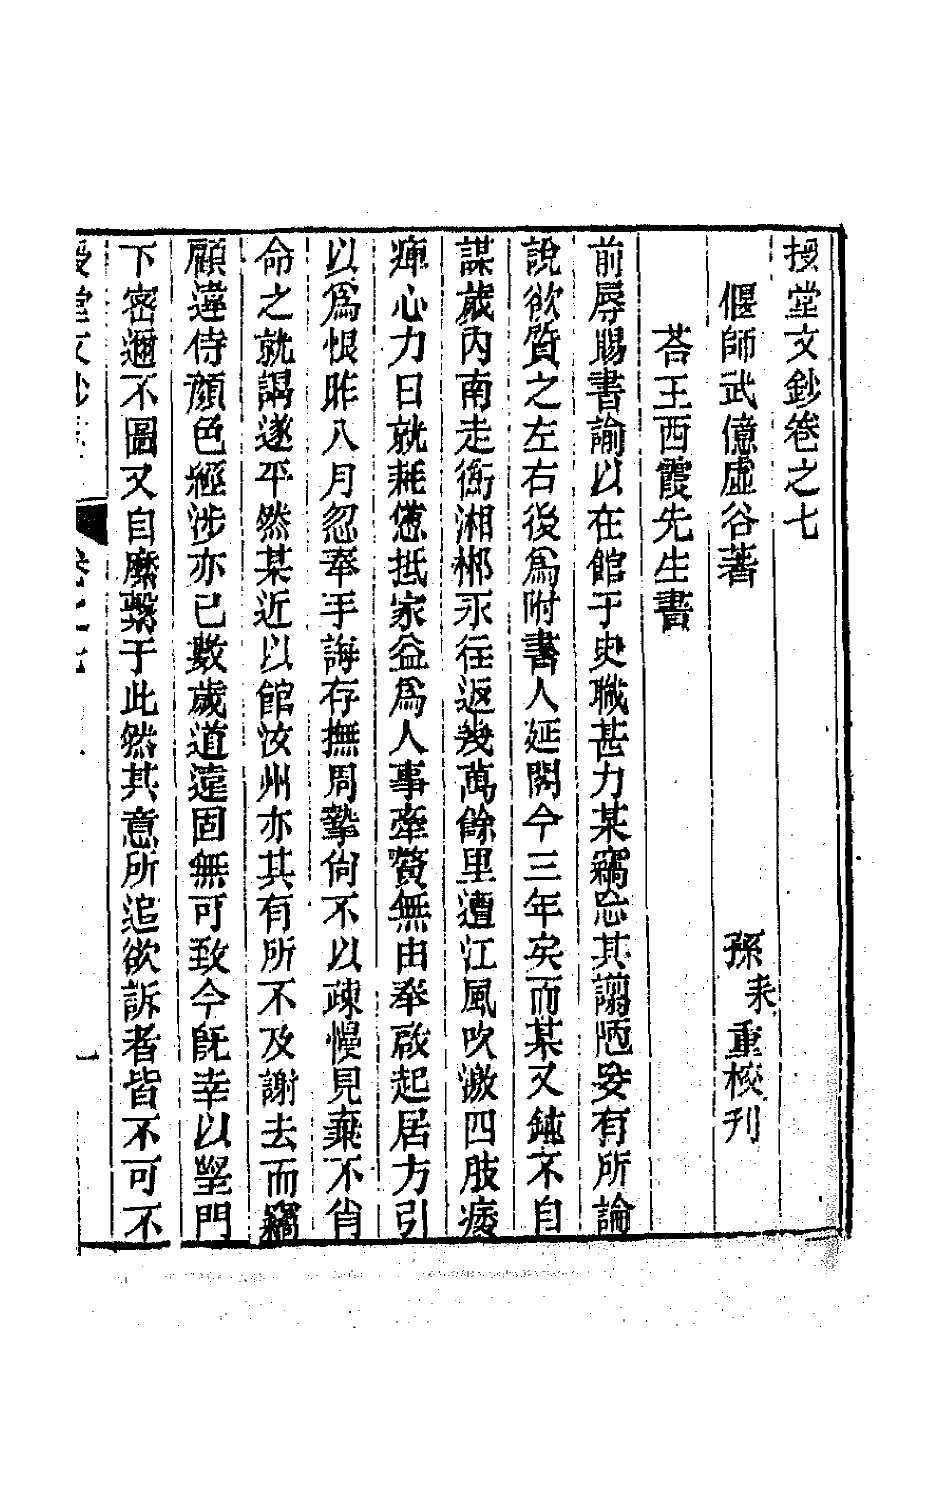 授堂文鈔卷之七
偃師武億虛谷著
孫耒重校刊
荅王西霞先生書
前辱賜書諭以在館于史職甚力某竊忘其謭陋妄有所論
說欲質之左右後爲附書人延閣今三年矣而某又鈍不自
謀歲內南走衡湘郴永往返幾萬餘里遭江風吹激四肢痿
痺心力日就耗憊抵家益爲人事牽贅無由奉啟起居方引
以爲恨昨八月忽奉手誨存撫周摯尙不以疎慢見棄不肖
命之就謁遂平然某近以館汝州亦其有所不及謝去而竊
顧違侍顏色經涉亦已數歲道遠固無可致今旣幸以望門
下密邇不圖又自縻繫于此然其意所追欲訴者皆不可不
授堂文鈔
卷之七
一